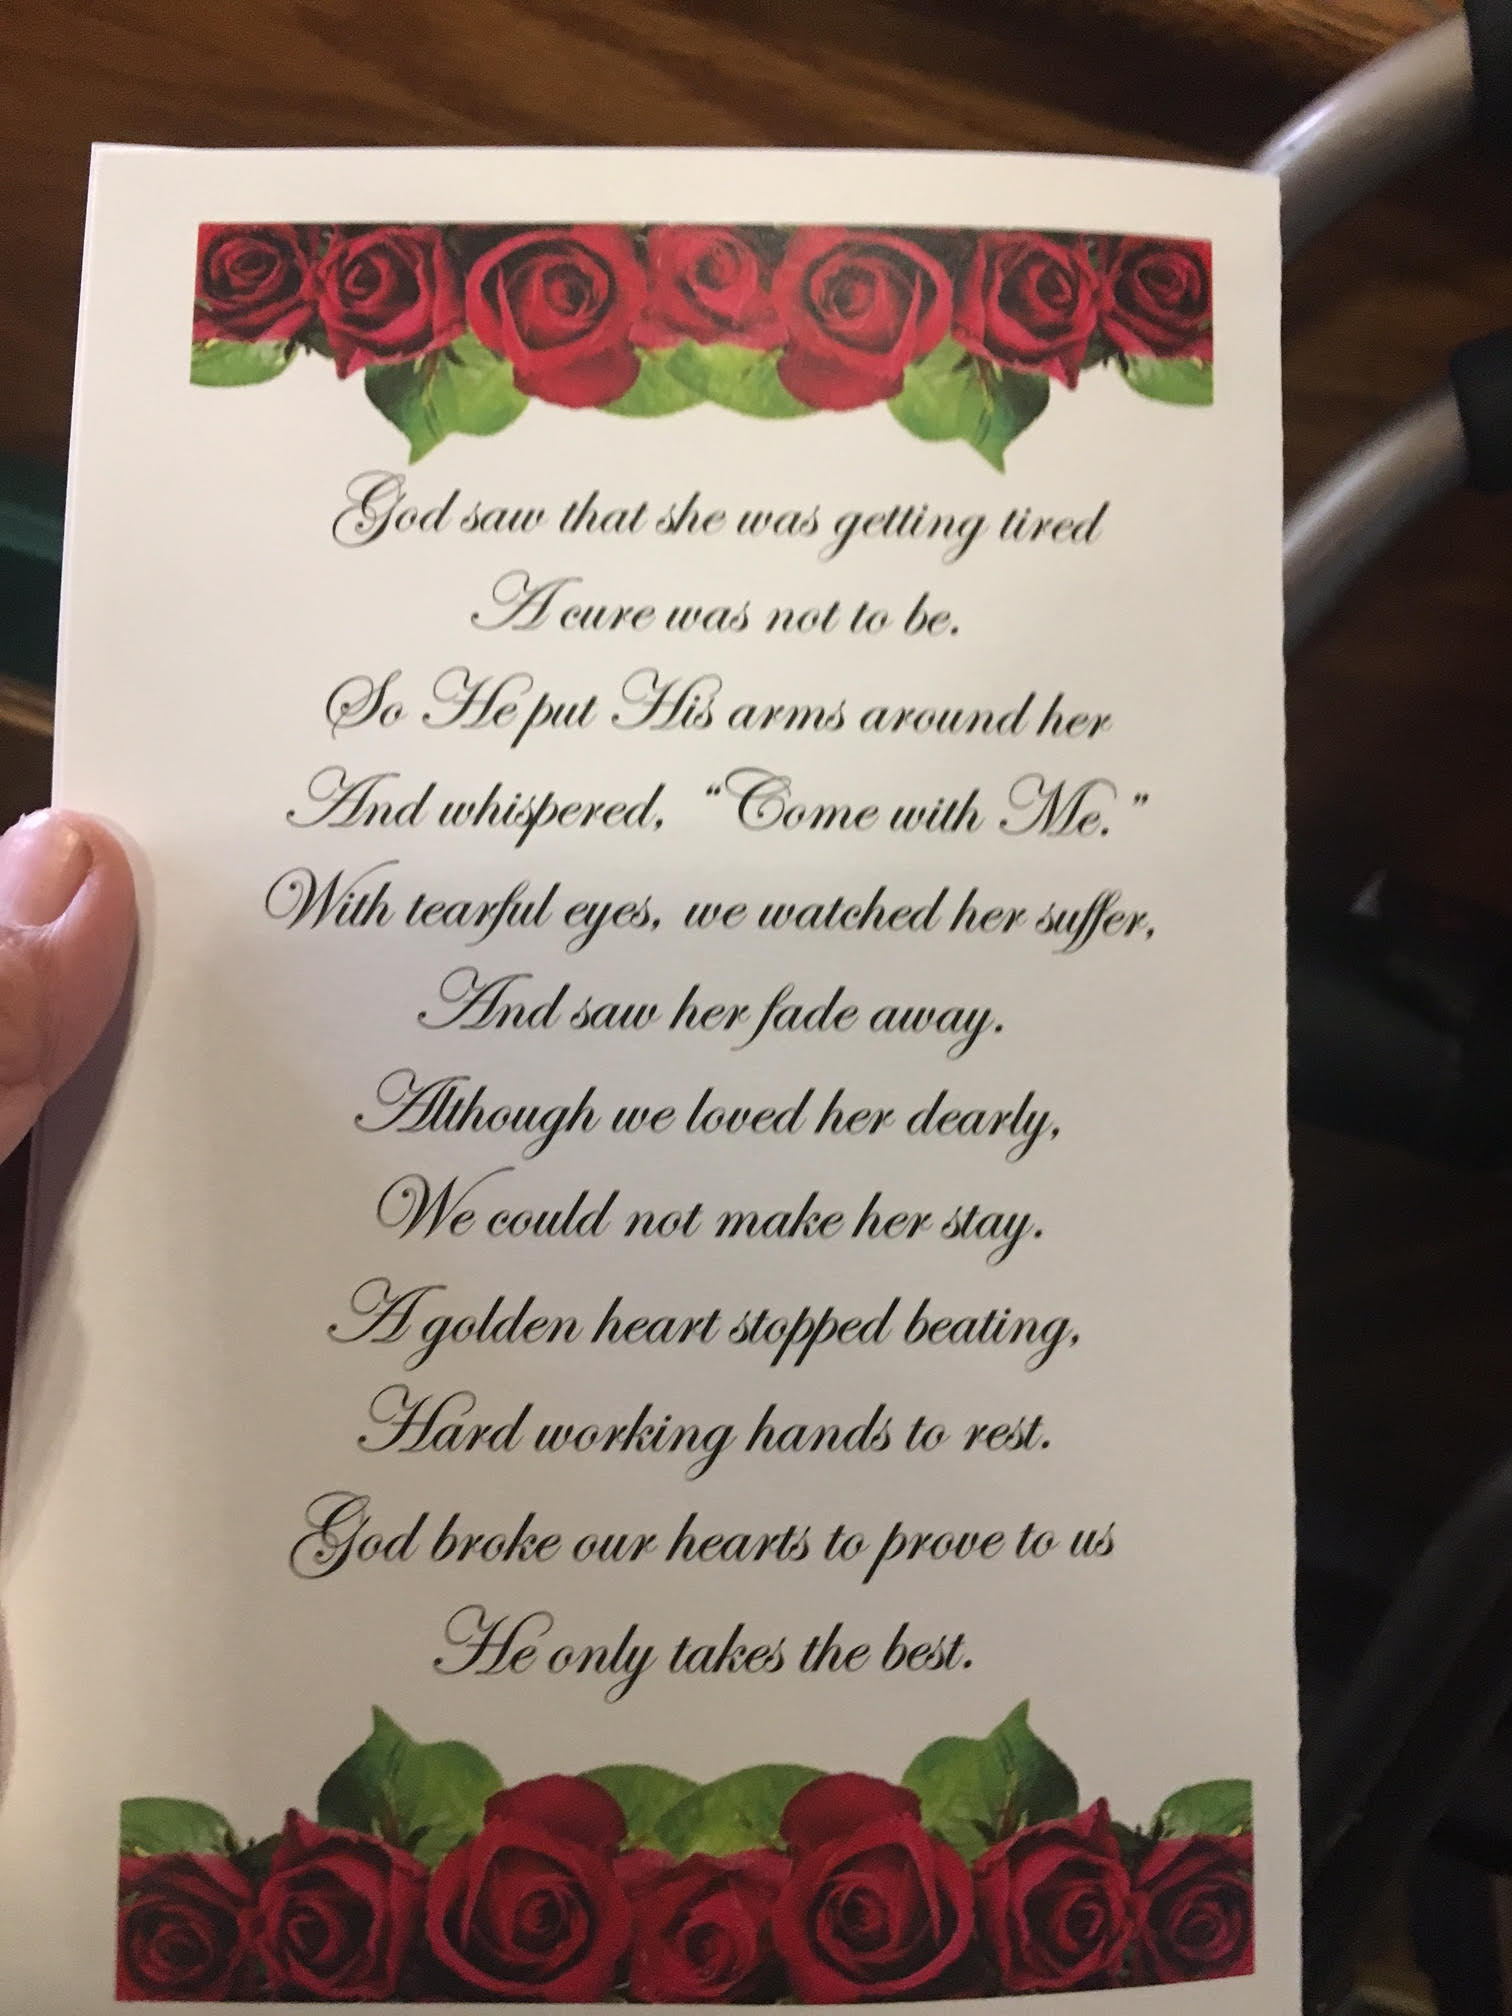 God saw that she was getting tired
A cure was not to be.
So He put His arms around her
And whispered, “Come with Me.”
With tearful eyes, we watched her suffer,
And saw her fade away.
Although we loved her dearly,
We could not make her stay.
A golden heart stopped beating,
Hard working hands to rest.
God broke our hearts to prove to us
He only takes the best.